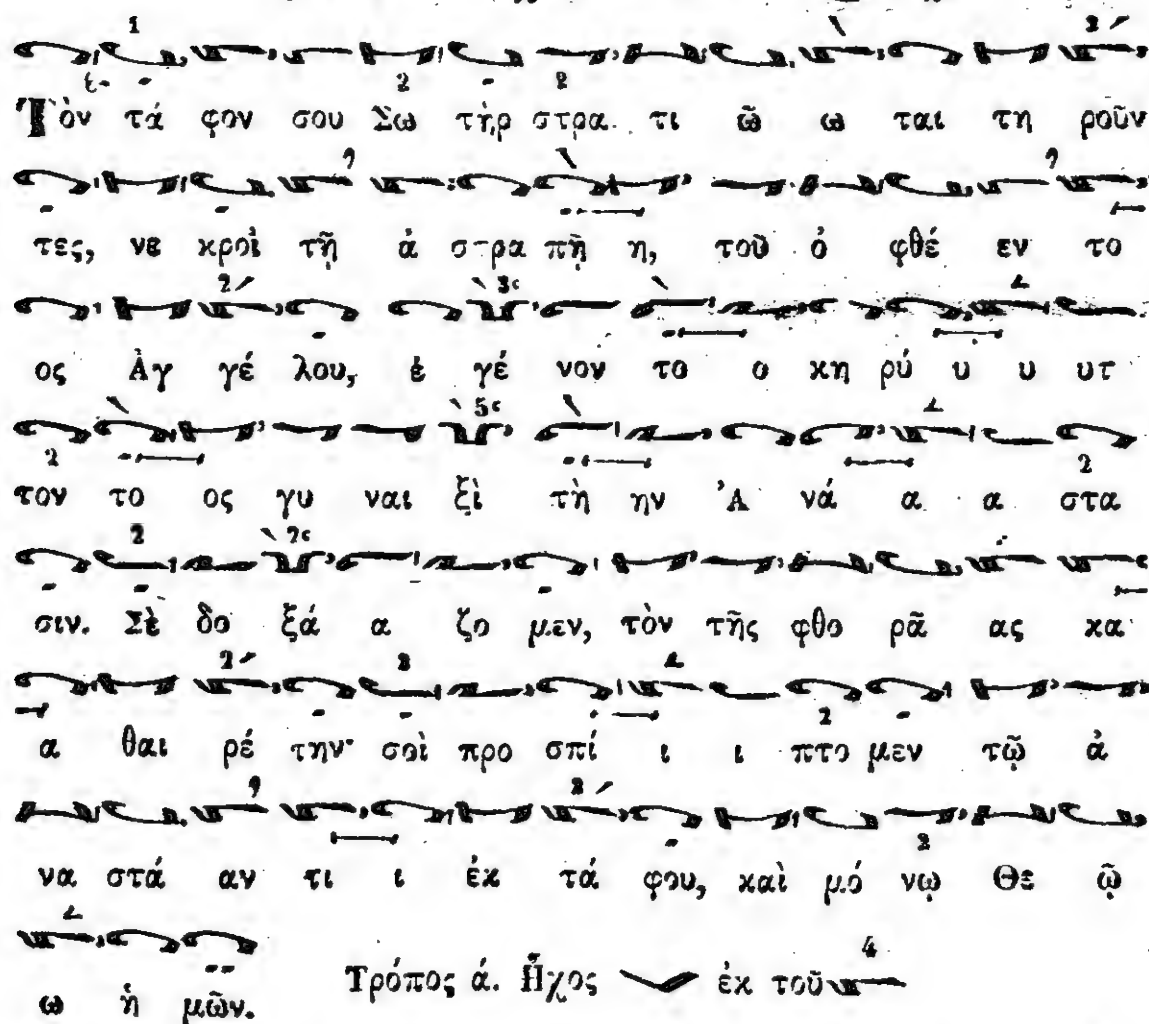 Τὸν τά φον σου Σω τὴρ στρα τι ῶ ω ται τη ροῦν
τες, νε κροὶ τῇ ἀ στρα πῇ η, τοῦ ὀ φθέ εν το
ος Ἀγ γέ λου, ἐ γέ νον το ο κη ρύ υ υ υτ
τον το ος γυ ναι ξὶ τὴ ην Ἀ νά α α στα
σιν. Σὲ δο ξά α ζο μεν, τὸν τῆς φθο ρᾶ ας κα
α θαι ρέ την· σοὶ προ σπί ι ι πτο μεν τῷ ἀ
να στά αν τι ι ἐκ τά φου, καὶ μό νῳ Θε ῷ
ω ἡ μῶν.
Τρόπος ά. Ἦχος ἐκ τοῦ 4